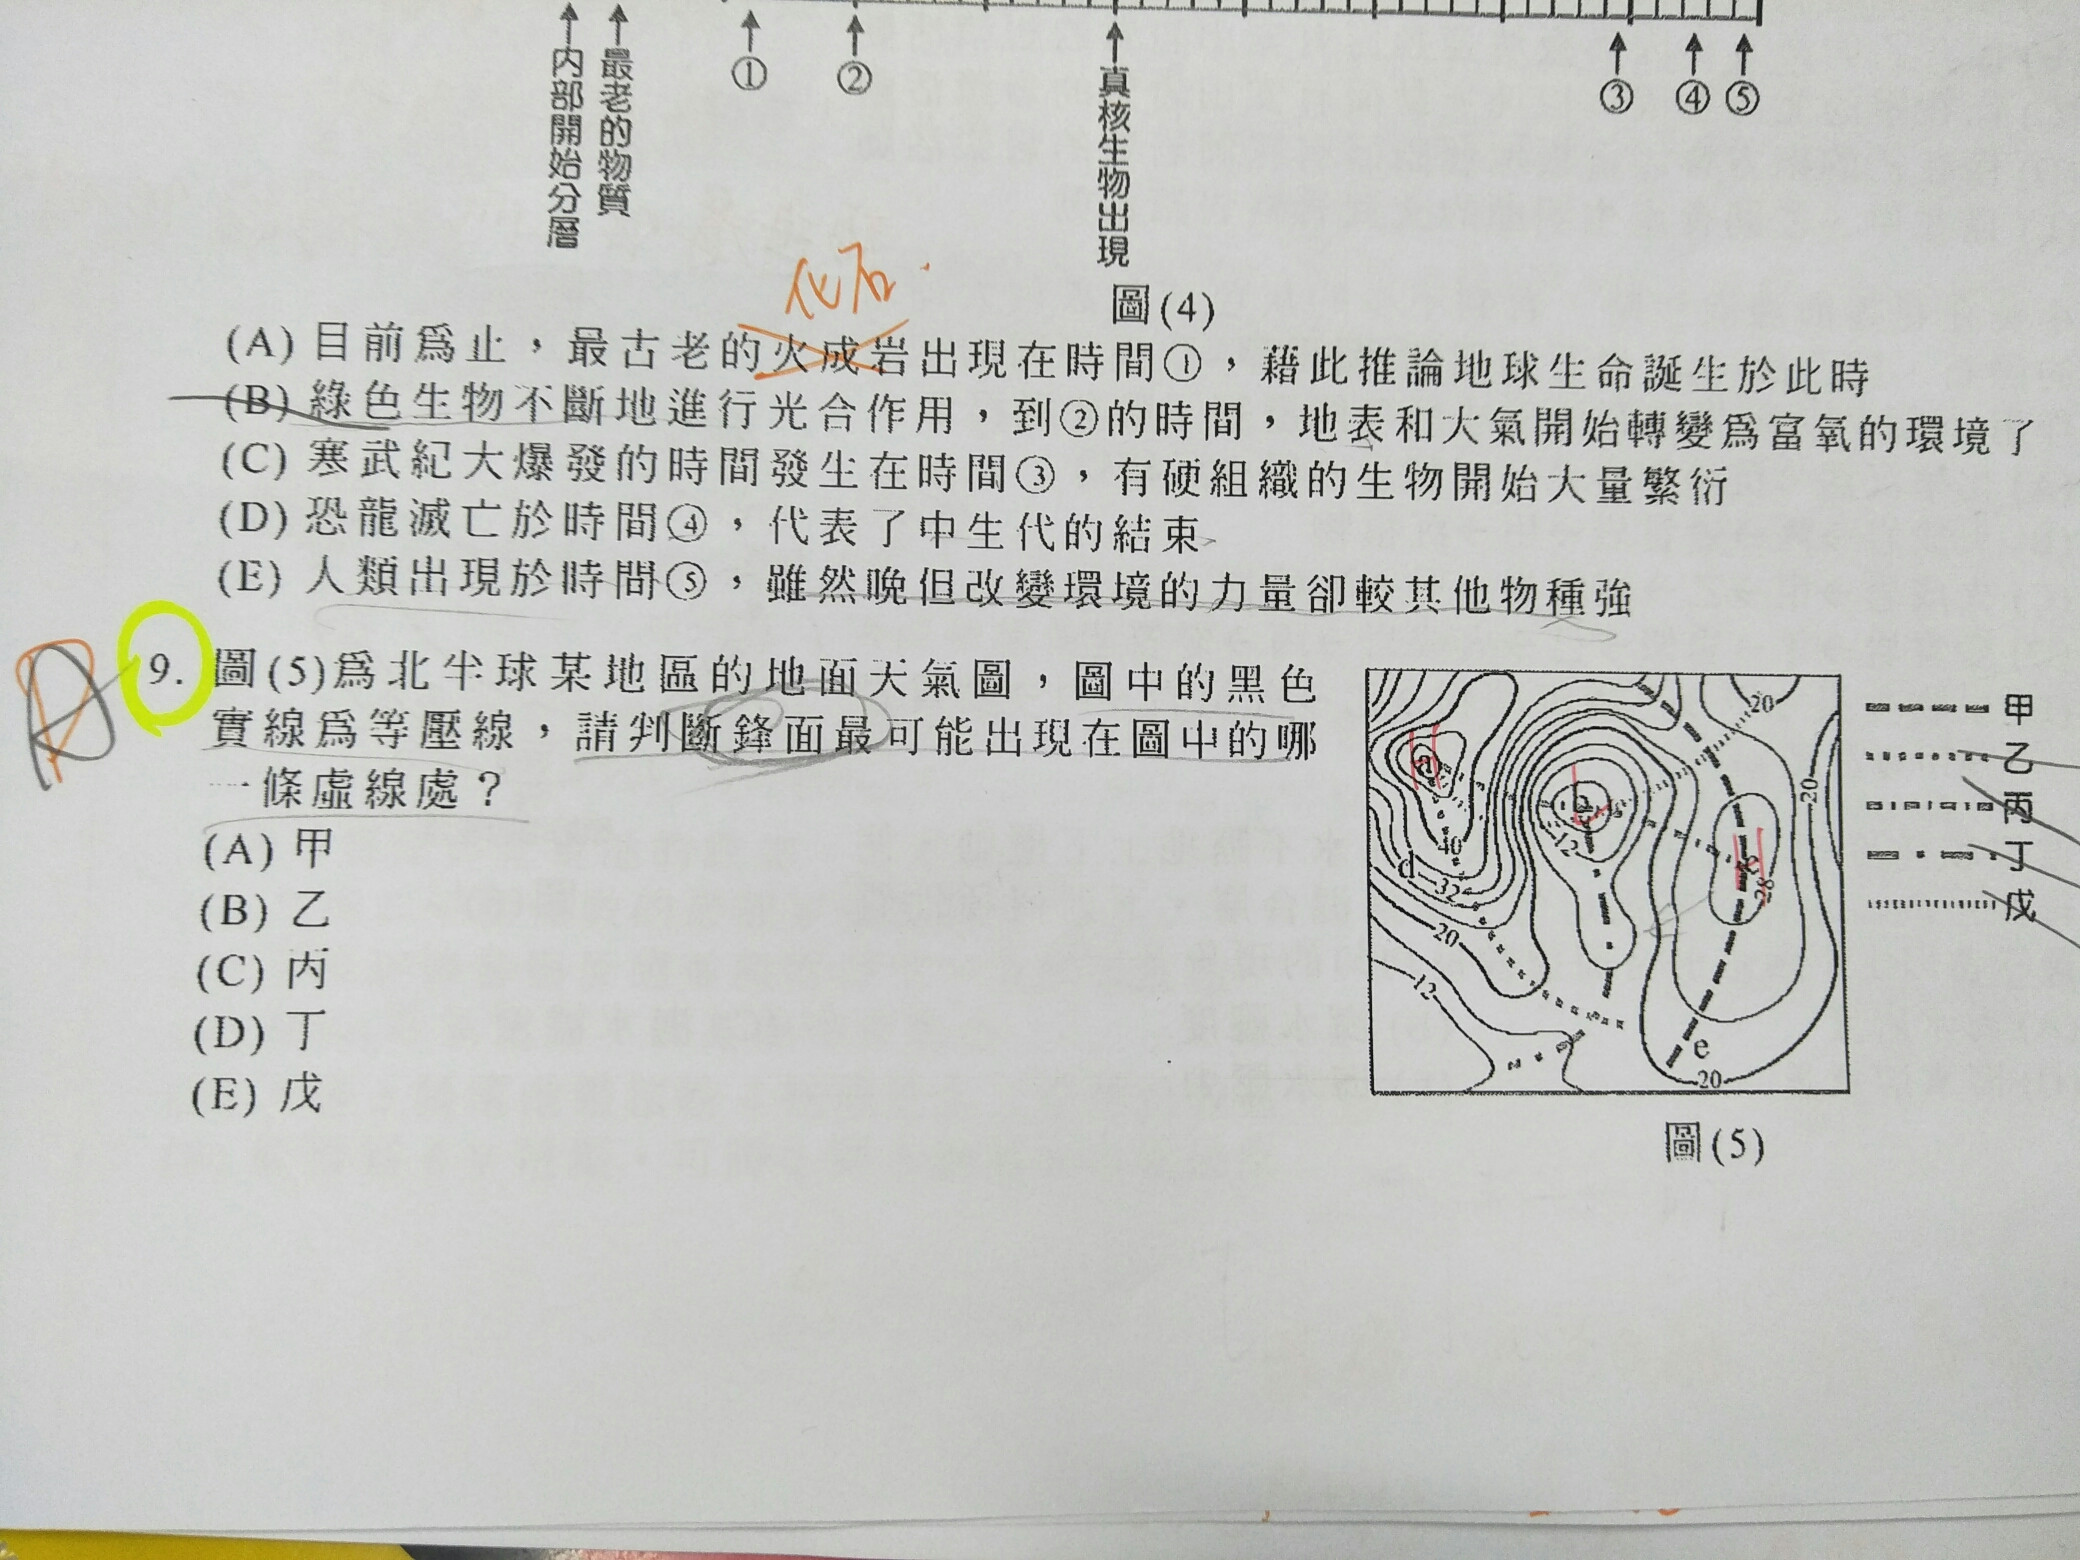 內部開始分層
最老的物質
①
②
真核生物出現
③
④
⑤
圖(4)
化石
(A) 目前為止，最古老的火成岩出現在時間①，藉此推論地球生命誕生於此時
(B) 綠色生物不斷地進行光合作用，到②的時間，地表和大氣開始轉變為富氧的環境了
(C) 寒武紀大爆發的時間發生在時間③，有硬組織的生物開始大量繁衍
(D) 恐龍滅亡於時間④，代表了中生代的結束
(E) 人類出現於時間⑤，雖然晚但改變環境的力量卻較其他物種強
9. 圖(5)為北半球某地區的地面天氣圖，圖中的黑色
實線為等壓線，請判斷鋒面最可能出現在圖中的哪
一條虛線處？
(A) 甲
(B) 乙
(C) 丙
(D) 丁
(E) 戊
20
甲
乙
丙
丁
戊
H
a
L
20
12
40
d
32
H
28
20
12
e
20
圖(5)